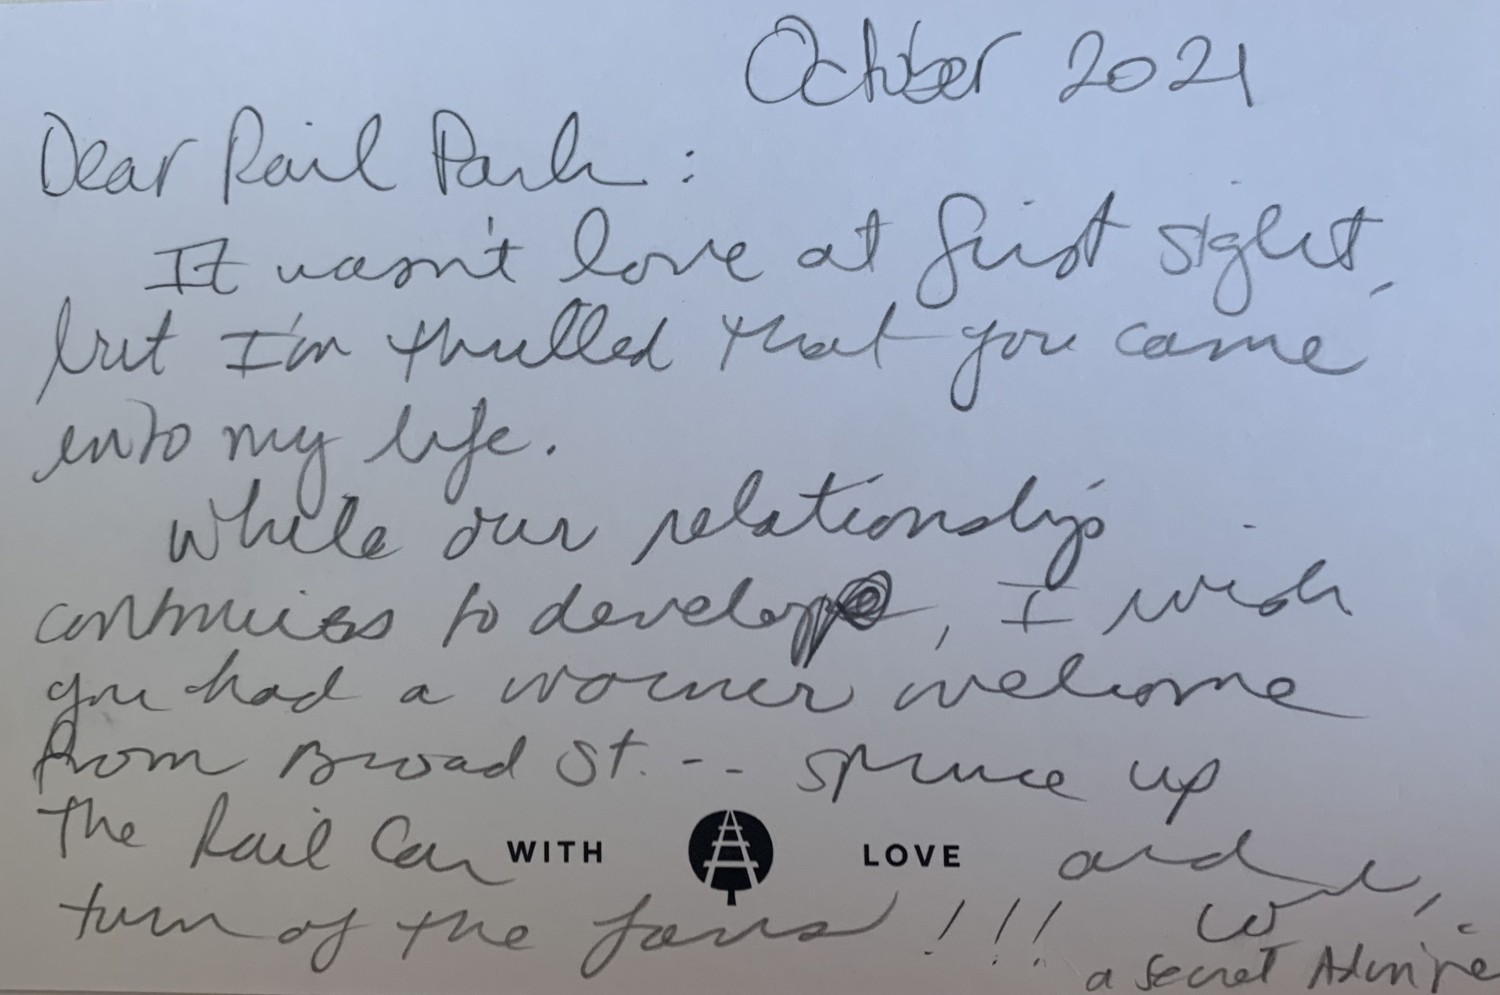 October 2021
Dear Rail Park:
It wasn't love at first sight,
but I'm thrilled that you came
into my life.
While our relationship
continues to develop, I wish
you had a warmer welcome
from Broad St. -- spruce up
the Rail Car WITH LOVE and
turn of the fans!!!
a Secret Admire